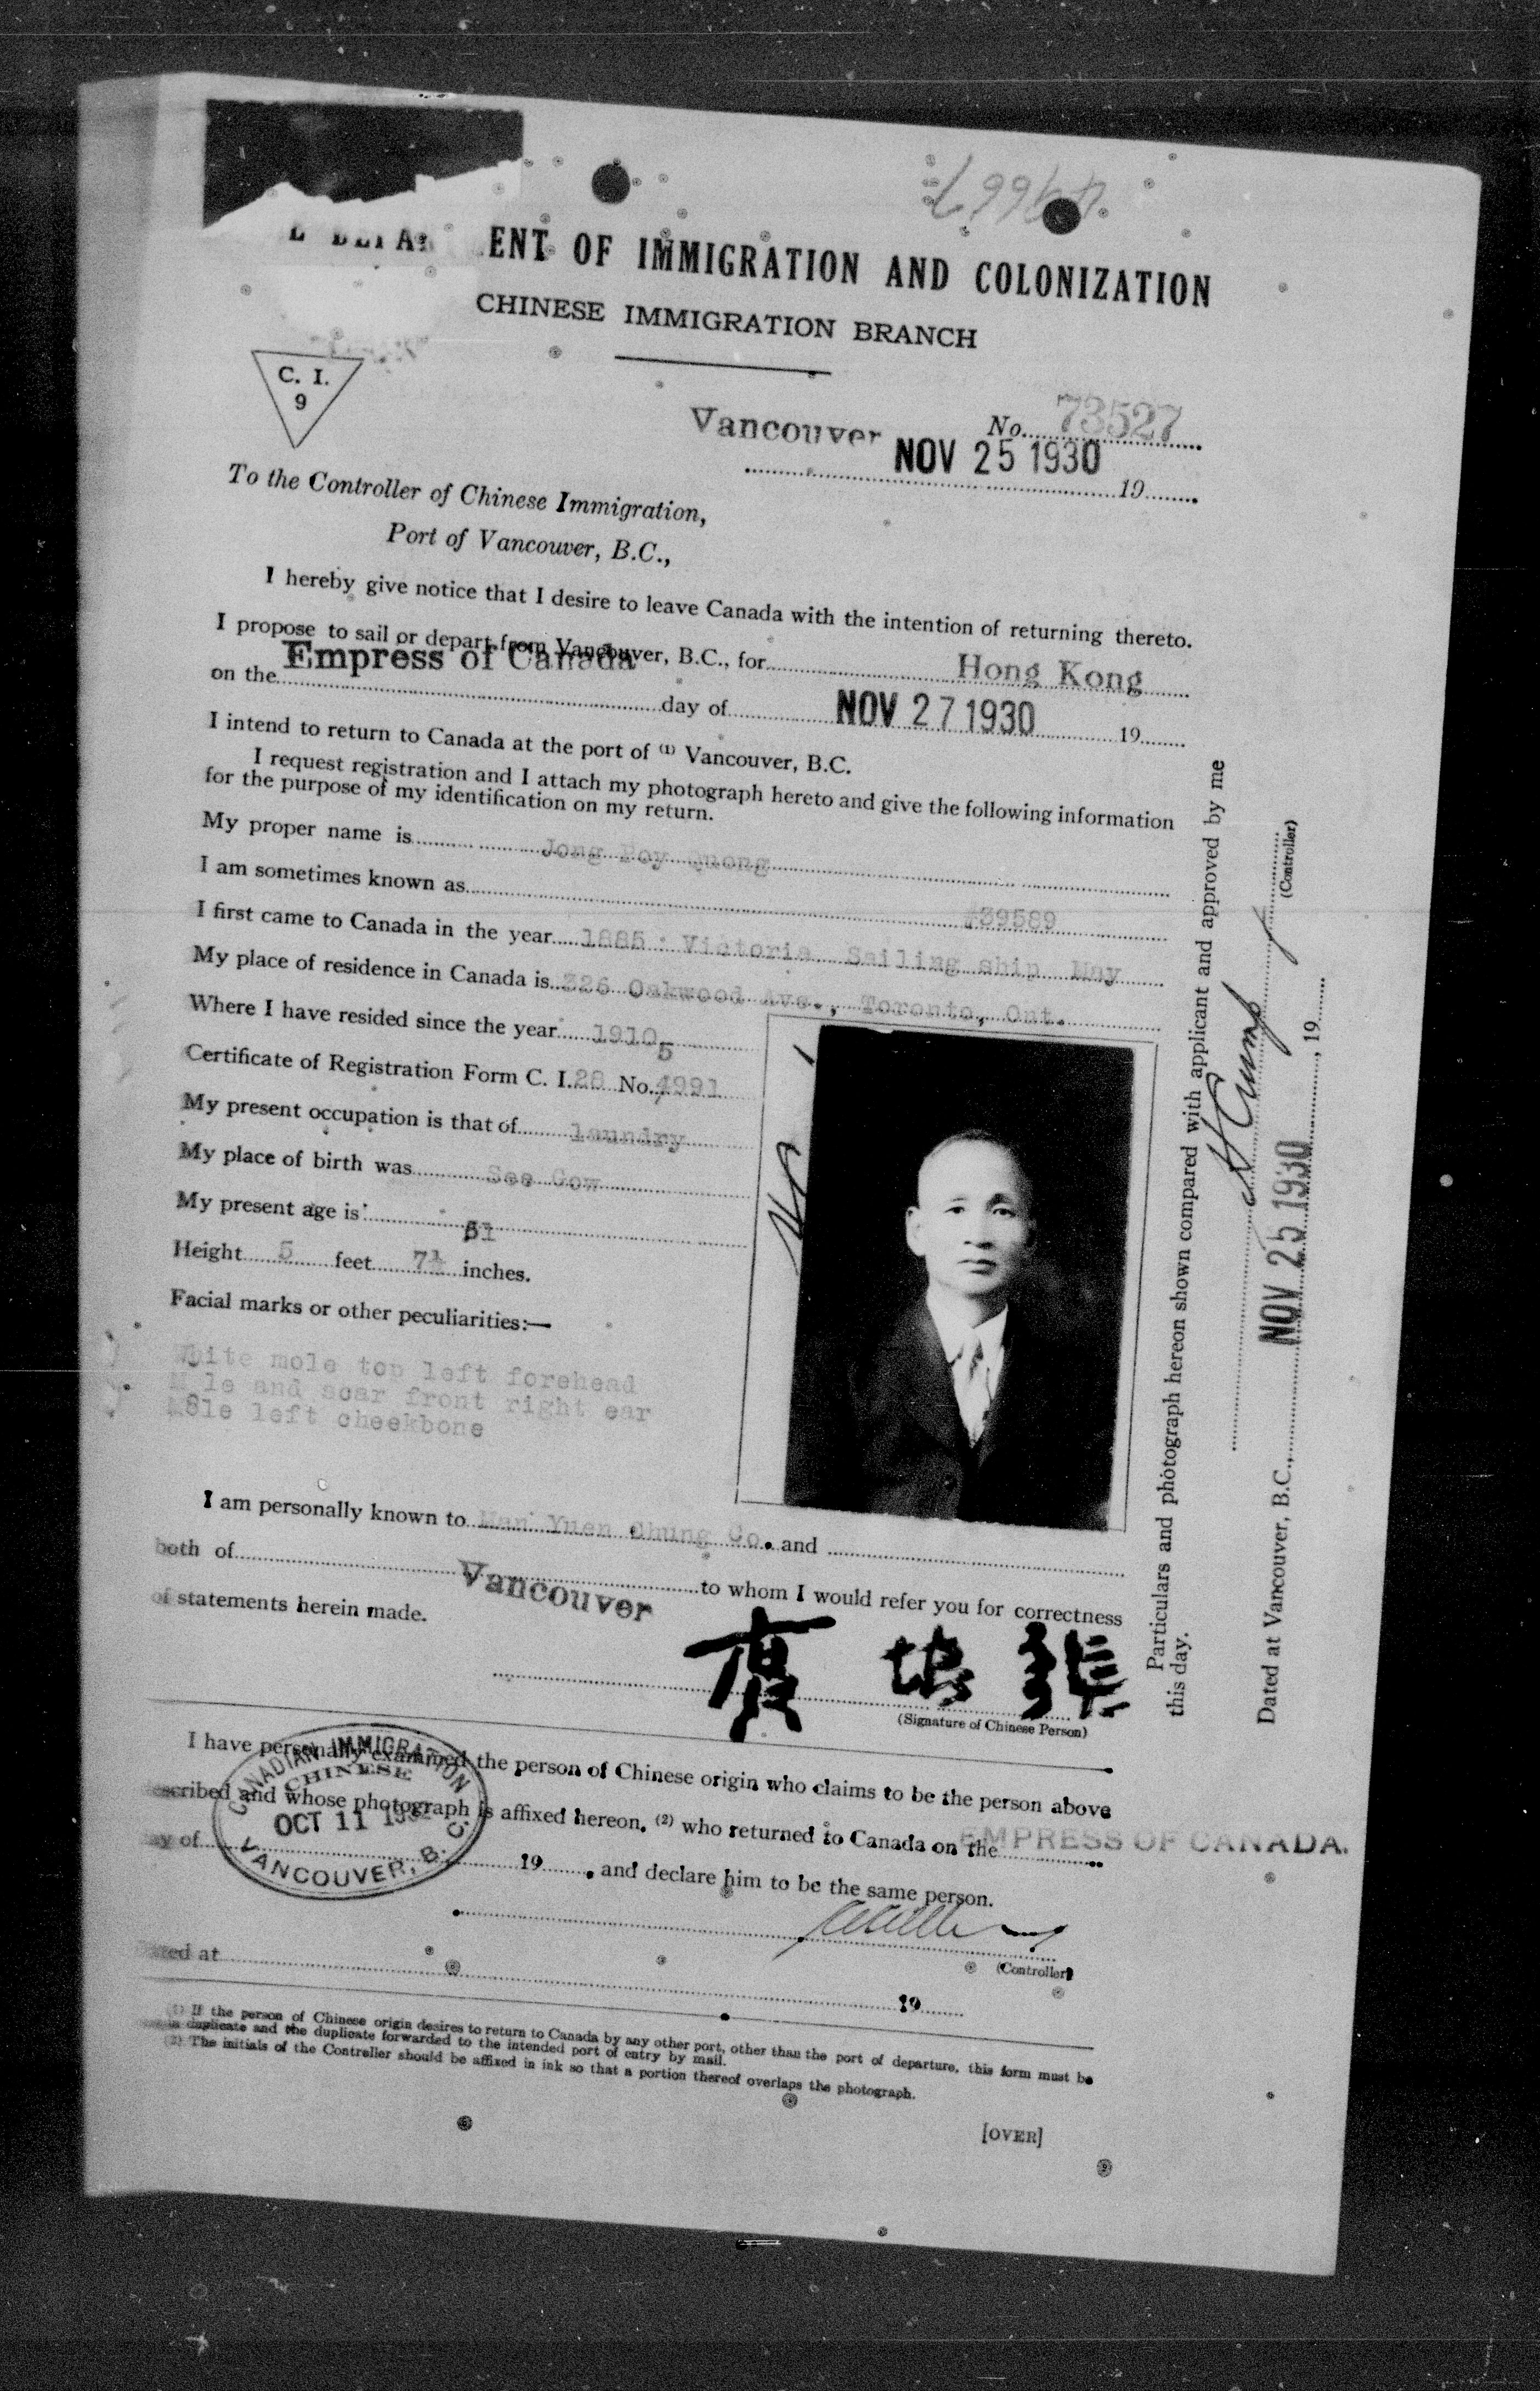 ENT OF IMMIGRATION AND COLONIZATION
CHINESE IMMIGRATION BRANCH
C. I.
9
No. 73527
Vancouver NOV 25 1930 19
To the Controller of Chinese Immigration,
Port of Vancouver, B.C.,
I hereby give notice that I desire to leave Canada with the intention of returning thereto.
I propose to sail or depart from Vancouver, B.C., for Hong Kong
Empress of Canada
on the day of NOV 27 1930 19
I intend to return to Canada at the port of (1) Vancouver, B.C.
I request registration and I attach my photograph hereto and give the following information
for the purpose of my identification on my return.
My proper name is Jong Poy Quong
I am sometimes known as
#39589
I first came to Canada in the year 1885 Victoria Sailing ship May
My place of residence in Canada is 326 Oakwood Ave., Toronto, Ont.
Where I have resided since the year 1910
5
Certificate of Registration Form C. I. 28 No. 4991
My present occupation is that of laundry
My place of birth was See Gow
My present age is 51
Height 5 feet 7½ inches.
Facial marks or other peculiarities:—
White mole top left forehead
Mole and scar front right ear
Mole left cheekbone
I am personally known to Yuen Chung Co. and
both of Vancouver to whom I would refer you for correctness
of statements herein made.
(Signature of Chinese Person)
I have personally examined the person of Chinese origin who claims to be the person above
scribed and whose photograph is affixed hereon, (2) who returned to Canada on the EMPRESS OF CANADA.
ay of 19 , and declare him to be the same person.
CANADIAN IMMIGRATION
CHINESE
OCT 11
VANCOUVER, B. C.
(Controller)
ted at 19
(1) If the person of Chinese origin desires to return to Canada by any other port, other than the port of departure, this form must be
in duplicate and the duplicate forwarded to the intended port of entry by mail.
(2) The initials of the Controller should be affixed in ink so that a portion thereof overlaps the photograph.
[OVER]
Particulars and photograph hereon shown compared with applicant and approved by me
this day.
(Controller)
Dated at Vancouver, B.C., NOV 25 1930, 19